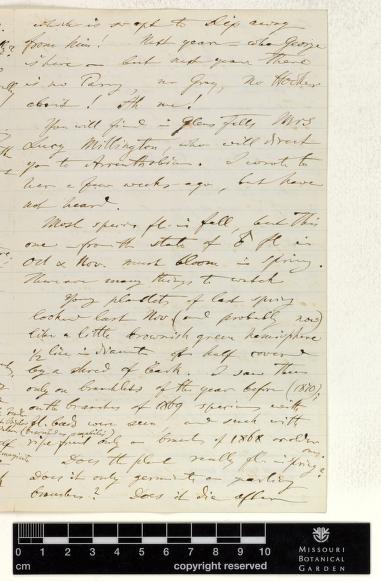 which is so apt to slip away
from him! Next year – when George
is here – but next year there
is no Parry, no Gray, no Hooker
about! Ah me!
You will find in Glens Falls Mrs
Lucy Millington, who will direct
you to Arceuthobium. I wrote to
her a few weeks ago, but have
not heard.
Most species fl. in fall, but this
one – from the state of fl. in
Oct & Nov. must bloom in spring.
There are many things to watch
Young plantlets of last spring
looked last Nov (and probably now)
like a little brownish green hemisphere
½ line in diameter & half covered
by a shred of bark. I saw them
only on branchlets of the year before (1870);
on the branches of 1869 specimens with
fl. buds were seen, and such with
ripe fruit only on branches of 1868 or older
ones.
Does the plant really fl. in spring?
Does it only germinate on yearling
branches? Does it die after
cm 1 2 3 4 5 6 7 8 9 10
copyright reserved
MISSOURI
BOTANICAL
GARDEN